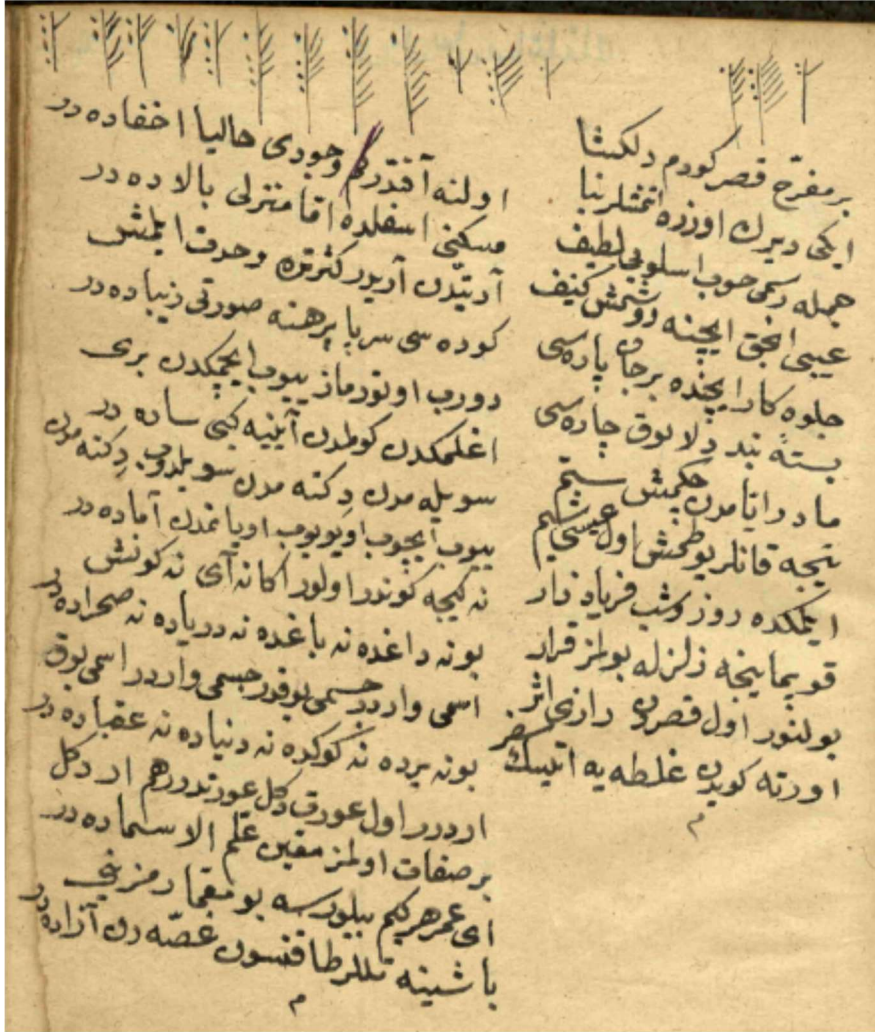 بر مفرّح قصر كوردم دلكشا
ايكى ديرك اوزره ايتمشلر بنا
جمله رسمى خوب اسلوبى لطيف
عيبى انجق ايچنه دوشمش كثيف
جلوه كار ايچنده بر جان پاره سى
بسته بند اولا يوق چاره سى
مادر اتامدن چكمش ستم
نيجه قانلر يوطمش اول عيسى شيم
ايتمكده روز وشب فرياد زار
قويما ينجه زلزله بولمز قرار
بولنور اول قصرى رازى اثر
اورته كويدن غلطه يه ايتسك سفر
م
اولنه آفندر وجودى حاليا اخفاده در
مسكنى اسفلده اقا منزلى بالاده در
آد يتيدن آديدر كثرتده وحدت ايلمش
كوده سى سر پا برهنه صورتى زيباده در
دورب اوتورماز ييوب ايچمكدن برى
اغلمكدن كولمدن آيينه كبى ساده در
سويله مدن دكنه مدن سويلدوب دكنه مدن
ييوب ايچوب اويويوب اويانمدن آماده در
نه كيجه كوندر اولور اكا نه آى نه كونش
بو نه داغده نه باغده نه درياده نه صحراده در
اسمى واردر جسمى يوقدر جسمى واردر اسمى يوق
بو نه يرده نه كوكده نه دنياده نه عقباده در
اردر اول عورت دكل عورتدر هم ار دكل
بر صفات اولمز مقين علم الاسماده در
اى عمر هر كيم بيلورسه بو معما رمزينى
باشينه تللر طاقنسون غصّه دن آزاده در
م